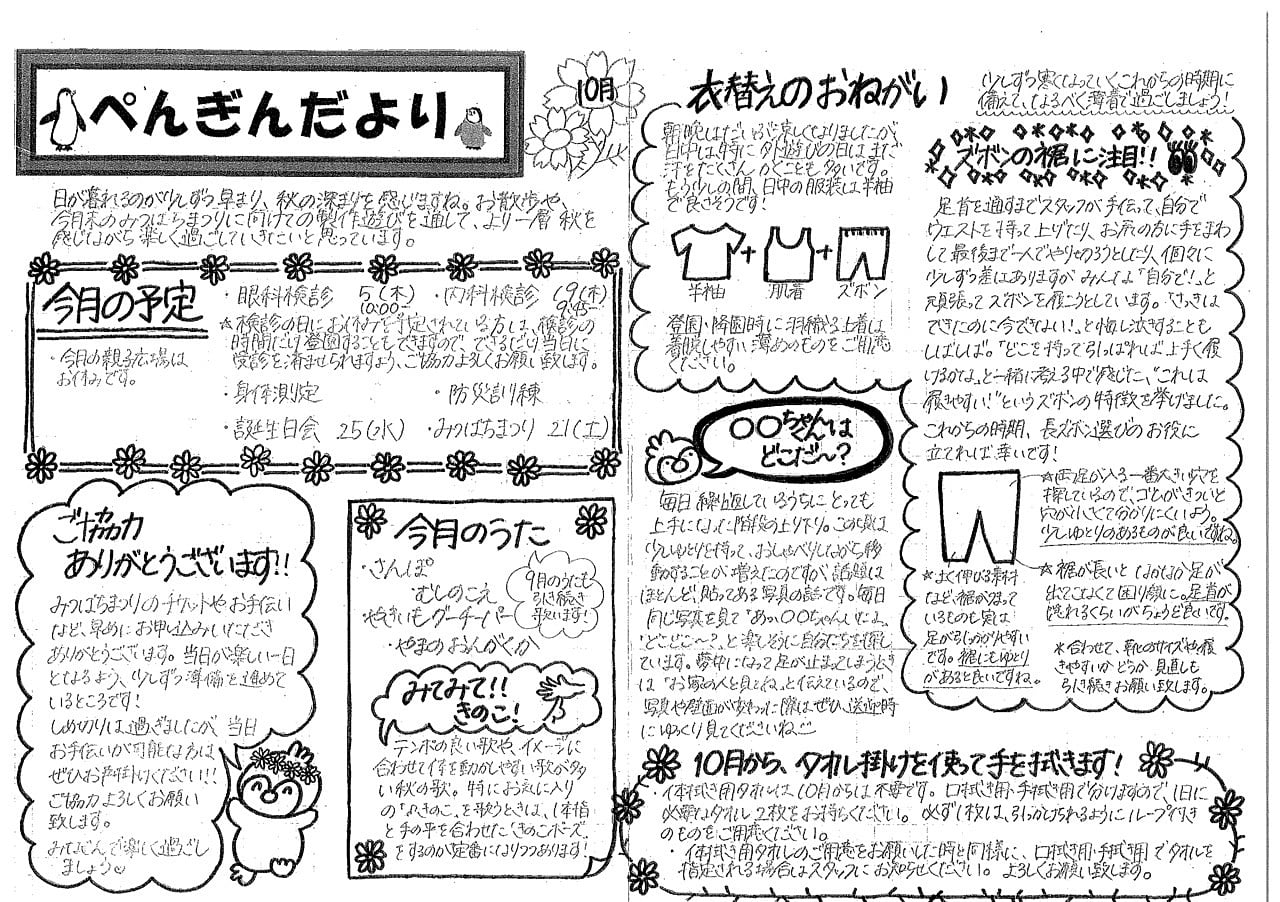 ぺんぎんだより
10月
日が暮れるのが少しずつ早まり、秋の深まりを感じますね。お散歩や、
今月末のみつばちまつりに向けての製作遊びを通して、より一層 秋を
感じながら楽しく過ごしていきたいと思っています。
今月の予定
・今月の親子広場は
お休みです。
・眼科検診 5(木) ・内科検診 19(木)
10:00~ 9:45~
☆検診の日にお休みを予定されている方は、検診の
時間だけ登園することもできますので、できるだけ当日に
受診を済ませられますよう、ご協力よろしくお願い致します。
・身体測定 ・防災訓練
・誕生日会 25(水) ・みつばちまつり 21(土)
ご協力
ありがとうございます!!
みつばちまつりのチケットやお手伝い
など、早めにお申し込みいただき
ありがとうございます。当日が楽しい一日
となるよう、少しずつ準備を進めて
いるところです!
しめきりは過ぎましたが、当日
お手伝いが可能な方は
ぜひお声掛けください!!
ご協力よろしくお願い
致します。
みなさんで楽しく過ごし
ましょう
今月のうた
・さんぽ
・むしのこえ
・やきいもグーチーパー
・やまのおんがくか
9月のうたも
引き続き
歌います!
みてみて!!
きのこ!
テンポの良い歌や、イメージに
合わせて体を動かしやすい歌が多
い秋の歌。特にお気に入り
の「きのこ」を歌うときは、1本指
と手の平を合わせた「きのこポーズ」
をするのが定番になりつつあります!
衣替えのおねがい
朝晩はだいぶ涼しくなりましたが、
日中は、特に外遊びの日はまだ
汗をたくさんかくことも多いです。
もう少しの間、日中の服装は半袖
で良さそうです!
半袖 + 肌着 + ズボン
登園・降園時に羽織る上着は
着脱しやすい薄めのものをご用意
ください。
〇〇ちゃんは
くん
どこだ~?
毎日繰り返しているうちにとっても
上手になった階段の上り下り。この頃は
少しゆとりを持って、おしゃべりしながら移
動することが増えたのですが、話題は
ほとんど、貼ってある写真の話です。毎日
同じ写真を見て「あっ〇〇ちゃんいたよ。」
「どこどこ~?」と楽しそうに自分たちを探し
ています。夢中になって足が止まってしまうとき
は「お家の人と見てね」と伝えているので、
写真や壁面が変わった際はぜひ、送迎時
にゆっくり見てくださいね
少しずつ寒くなっていくこれからの時期に
備えて、なるべく薄着で過ごしましょう!
ズボンの裾に注目!!
足首を通すまでスタッフが手伝って、自分で
ウエストを持って上げたり、お尻の方に手をまわ
して最後まで一人でやりきろうとしたり、個々に
少しずつ差はありますが みんな「自分で!」と
頑張ってズボンを履こうとしています。「さっきは
できたのに今できない!」と悔し泣きすることも
しばしば。「どこを持って引っぱれば上手く履
けるかな」と一緒に考える中で感じた、“これは
履きやすい!”というズボンの特徴を挙げました。
これからの時期、長ズボン選びのお役に
立てれば幸いです!
☆両足が入る一番大きい穴を
探しているので、ゴムがきついと
穴が小さくて分かりにくいよう。
少しゆとりのあるものが良いですね。
☆よく伸びる素材
など、裾が沿って
いるものも実は
足が引っかかりやすい
です。裾にもゆとり
があると良いですね。
☆裾が長いと なかなか足が
出てこなくて困り顔に。足首が
隠れるくらいがちょうど良いです。
*合わせて、靴のサイズや履
きやすいかどうか、見直しも
引き続きお願い致します。
10月から、タオル掛けを使って手を拭きます!
・体拭き用タオルは、10月からは不要です。口拭き用・手拭き用で分けますので、1日に
必要なタオル2枚をお持ちください。必ず1枚は、引っかけられるようにループ付き
のものをご用意ください。
・体拭き用タオルのご用意をお願いした時と同様に、口拭き用・手拭き用でタオルを
指定される場合はスタッフにお知らせください。よろしくお願い致します。